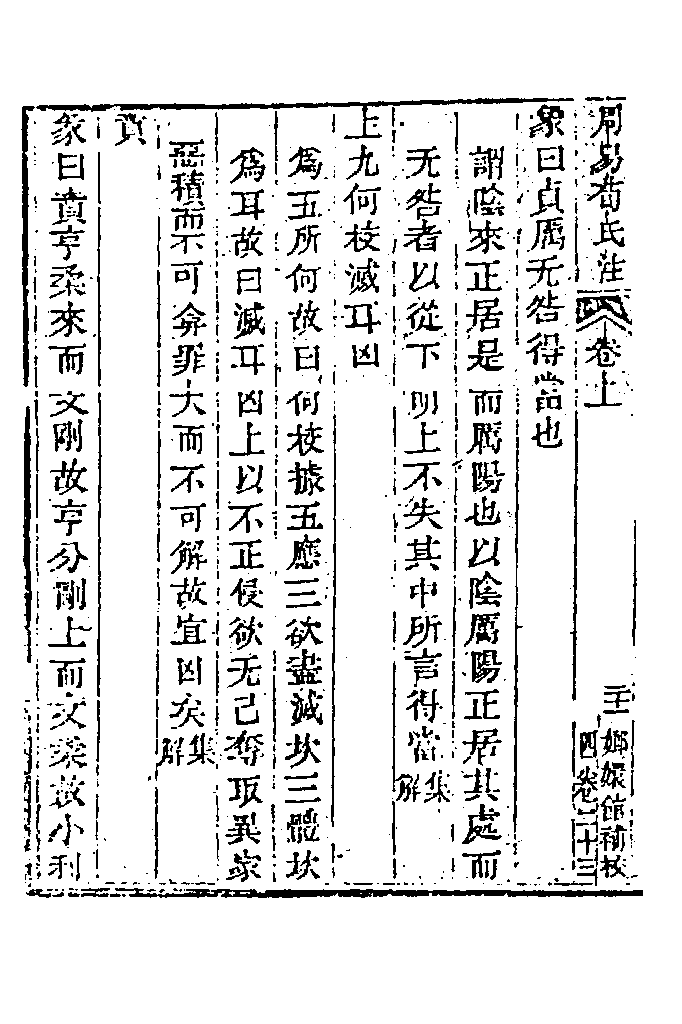 周易荀氏注 卷上 二十一 嫏嬛館補校
四卷二十三
象曰貞厲无咎得當也
謂陰來正居是而厲陽也以陰厲陽正居其處而
无咎者以從下明上不失其中所言得當集解
上九何校滅耳凶
爲五所何故曰何校據五應三欲盡滅坎三體坎
爲耳故曰滅耳凶上以不正侵欲无己奪取異家
惡積而不可弇罪大而不可解故宜凶矣集解
賁
彖曰賁亨柔來而文剛故亨分剛上而文柔故小利